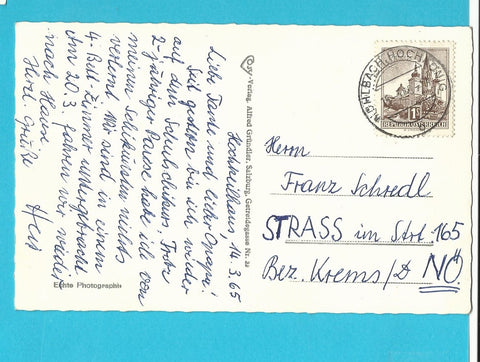 Hochkeilhaus, 14.3.65
Liebe Tante und lieber Opapa!
Seit gestern bin ich wieder
auf dem Schulschikurs. Trotz
2-jähriger Pause habe ich von
meinen Schikünsten nichts
verlernt. Wir sind in einem
4-Bett-Zimmer untergebracht.
Am 20.3. fahren wir wieder
nach Hause
Herzl. Grüße
Echte Photographie
Cosy-Verlag, Alfred Gründler, Salzburg, Getreidegasse Nr. 22
MÜHLBACH, HOCHKÖNIG
REPUBLIK ÖSTERREICH
Herrn
Franz Schredl
STRASS im Strt. 165
Bez. Krems/D NÖ